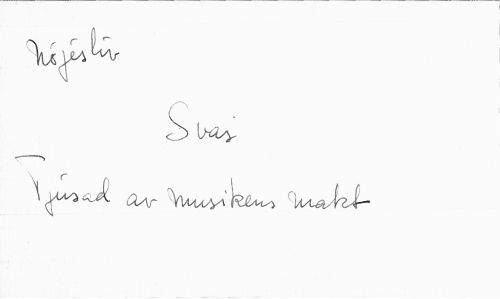 Nöjesliv
Svaj
Tjusad av musikens makt